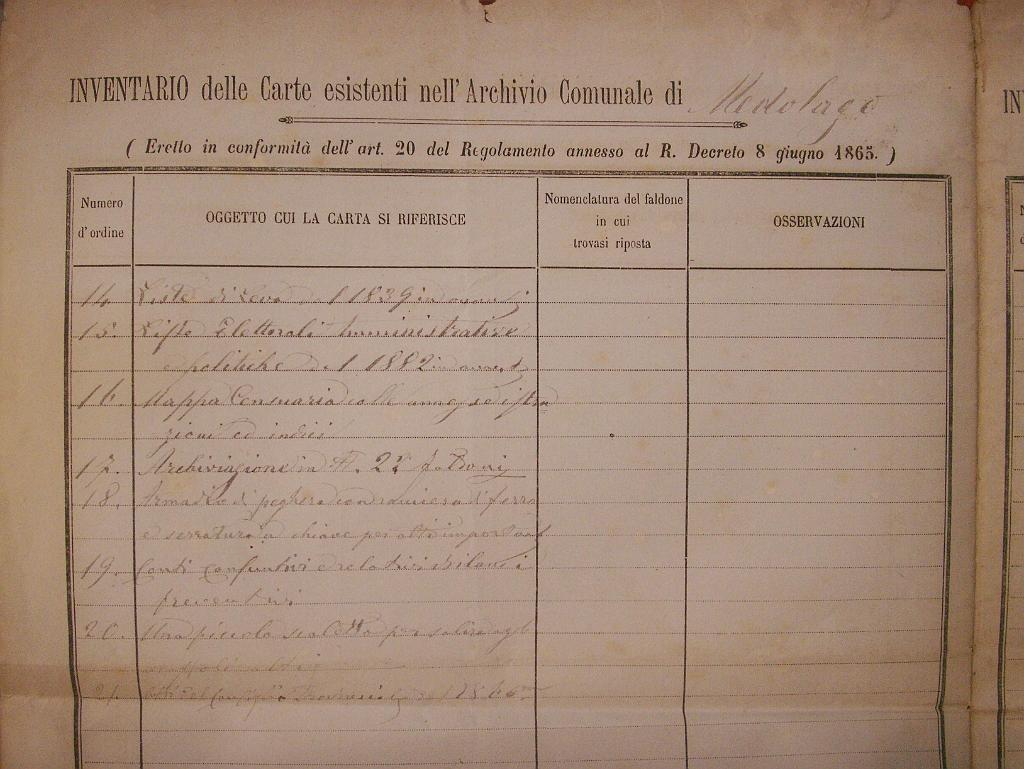 INVENTARIO delle Carte esistenti nell'Archivio Comunale di Medolago
( Eretto in conformità dell'art. 20 del Regolamento annesso al R. Decreto 8 giugno 1865. )
Numero
d'ordine
OGGETTO CUI LA CARTA SI RIFERISCE
Nomenclatura del faldone
in cui
trovasi riposta
OSSERVAZIONI
IN
14. Liste di Leva dal 1839 in avanti
15. Liste Elettorali Amministrative
e politiche dal 1882 in avanti
16. Mappa Censuaria colle annesse istru
zioni ed indici
17. Archiviazione in N. 22 faldoni
18. Armadio di peghera con ramiera di ferro
e serratura a chiave per atti importanti
19. Conti Consuntivi e relativi bilanci
preventivi
20. Una piccola scaletta per salire agli
21. Atti del Consiglio